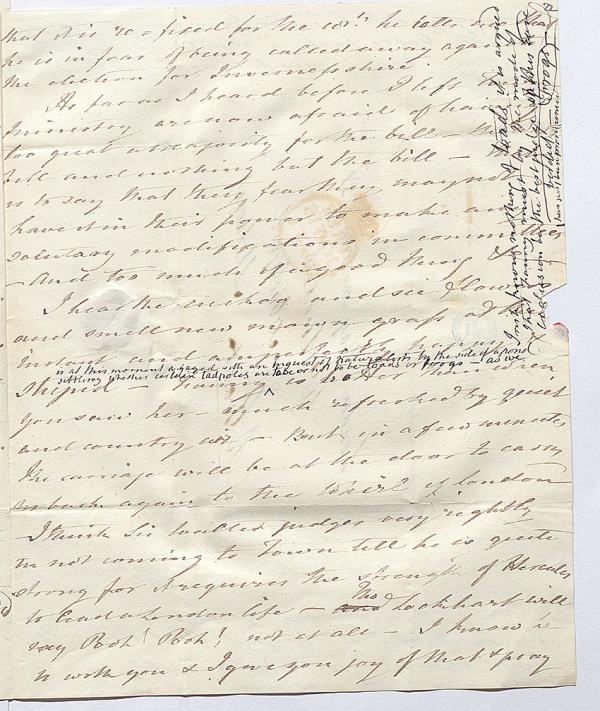 that it is re = fixed for the 10th he tells me that
he is in fear of being called away again
the election for Invernesshire.
As far as I heard before I left
ministry are now afraid of
too great a majority for the bill – the
bill and nothing but the bill –
is to say that they fear they may not
have it in their power to make any
salutary modifications in committees
– And too much of a good thing &c
I hear the cuckoo and see flowers
and smell new mown grass at this
instant and am perfectly happy
is at this moment engaged with an inquest of naturalists by the side of a pond
settling whether certain tadpoles are to be or not to be toads or frogs – as we
Fanny is better than when
you saw her – much refreshed by quiet
and country air – But in a few minutes
the carriage will be at the door to carry
us back again to the whirl of London
– I think Sir Walter judges very rightly
in not coming to Town till he is quite
strong for it requires the strength of Hercules
to lead a London life – Tho Lockhart will
say Pooh! Pooh! not at all – I know he
is with you & I give you joy of that & pray
knows nothing of toads it is argued
that Fanny must by the mode of
be the best judge in this case
frogs –
has just been pronounced